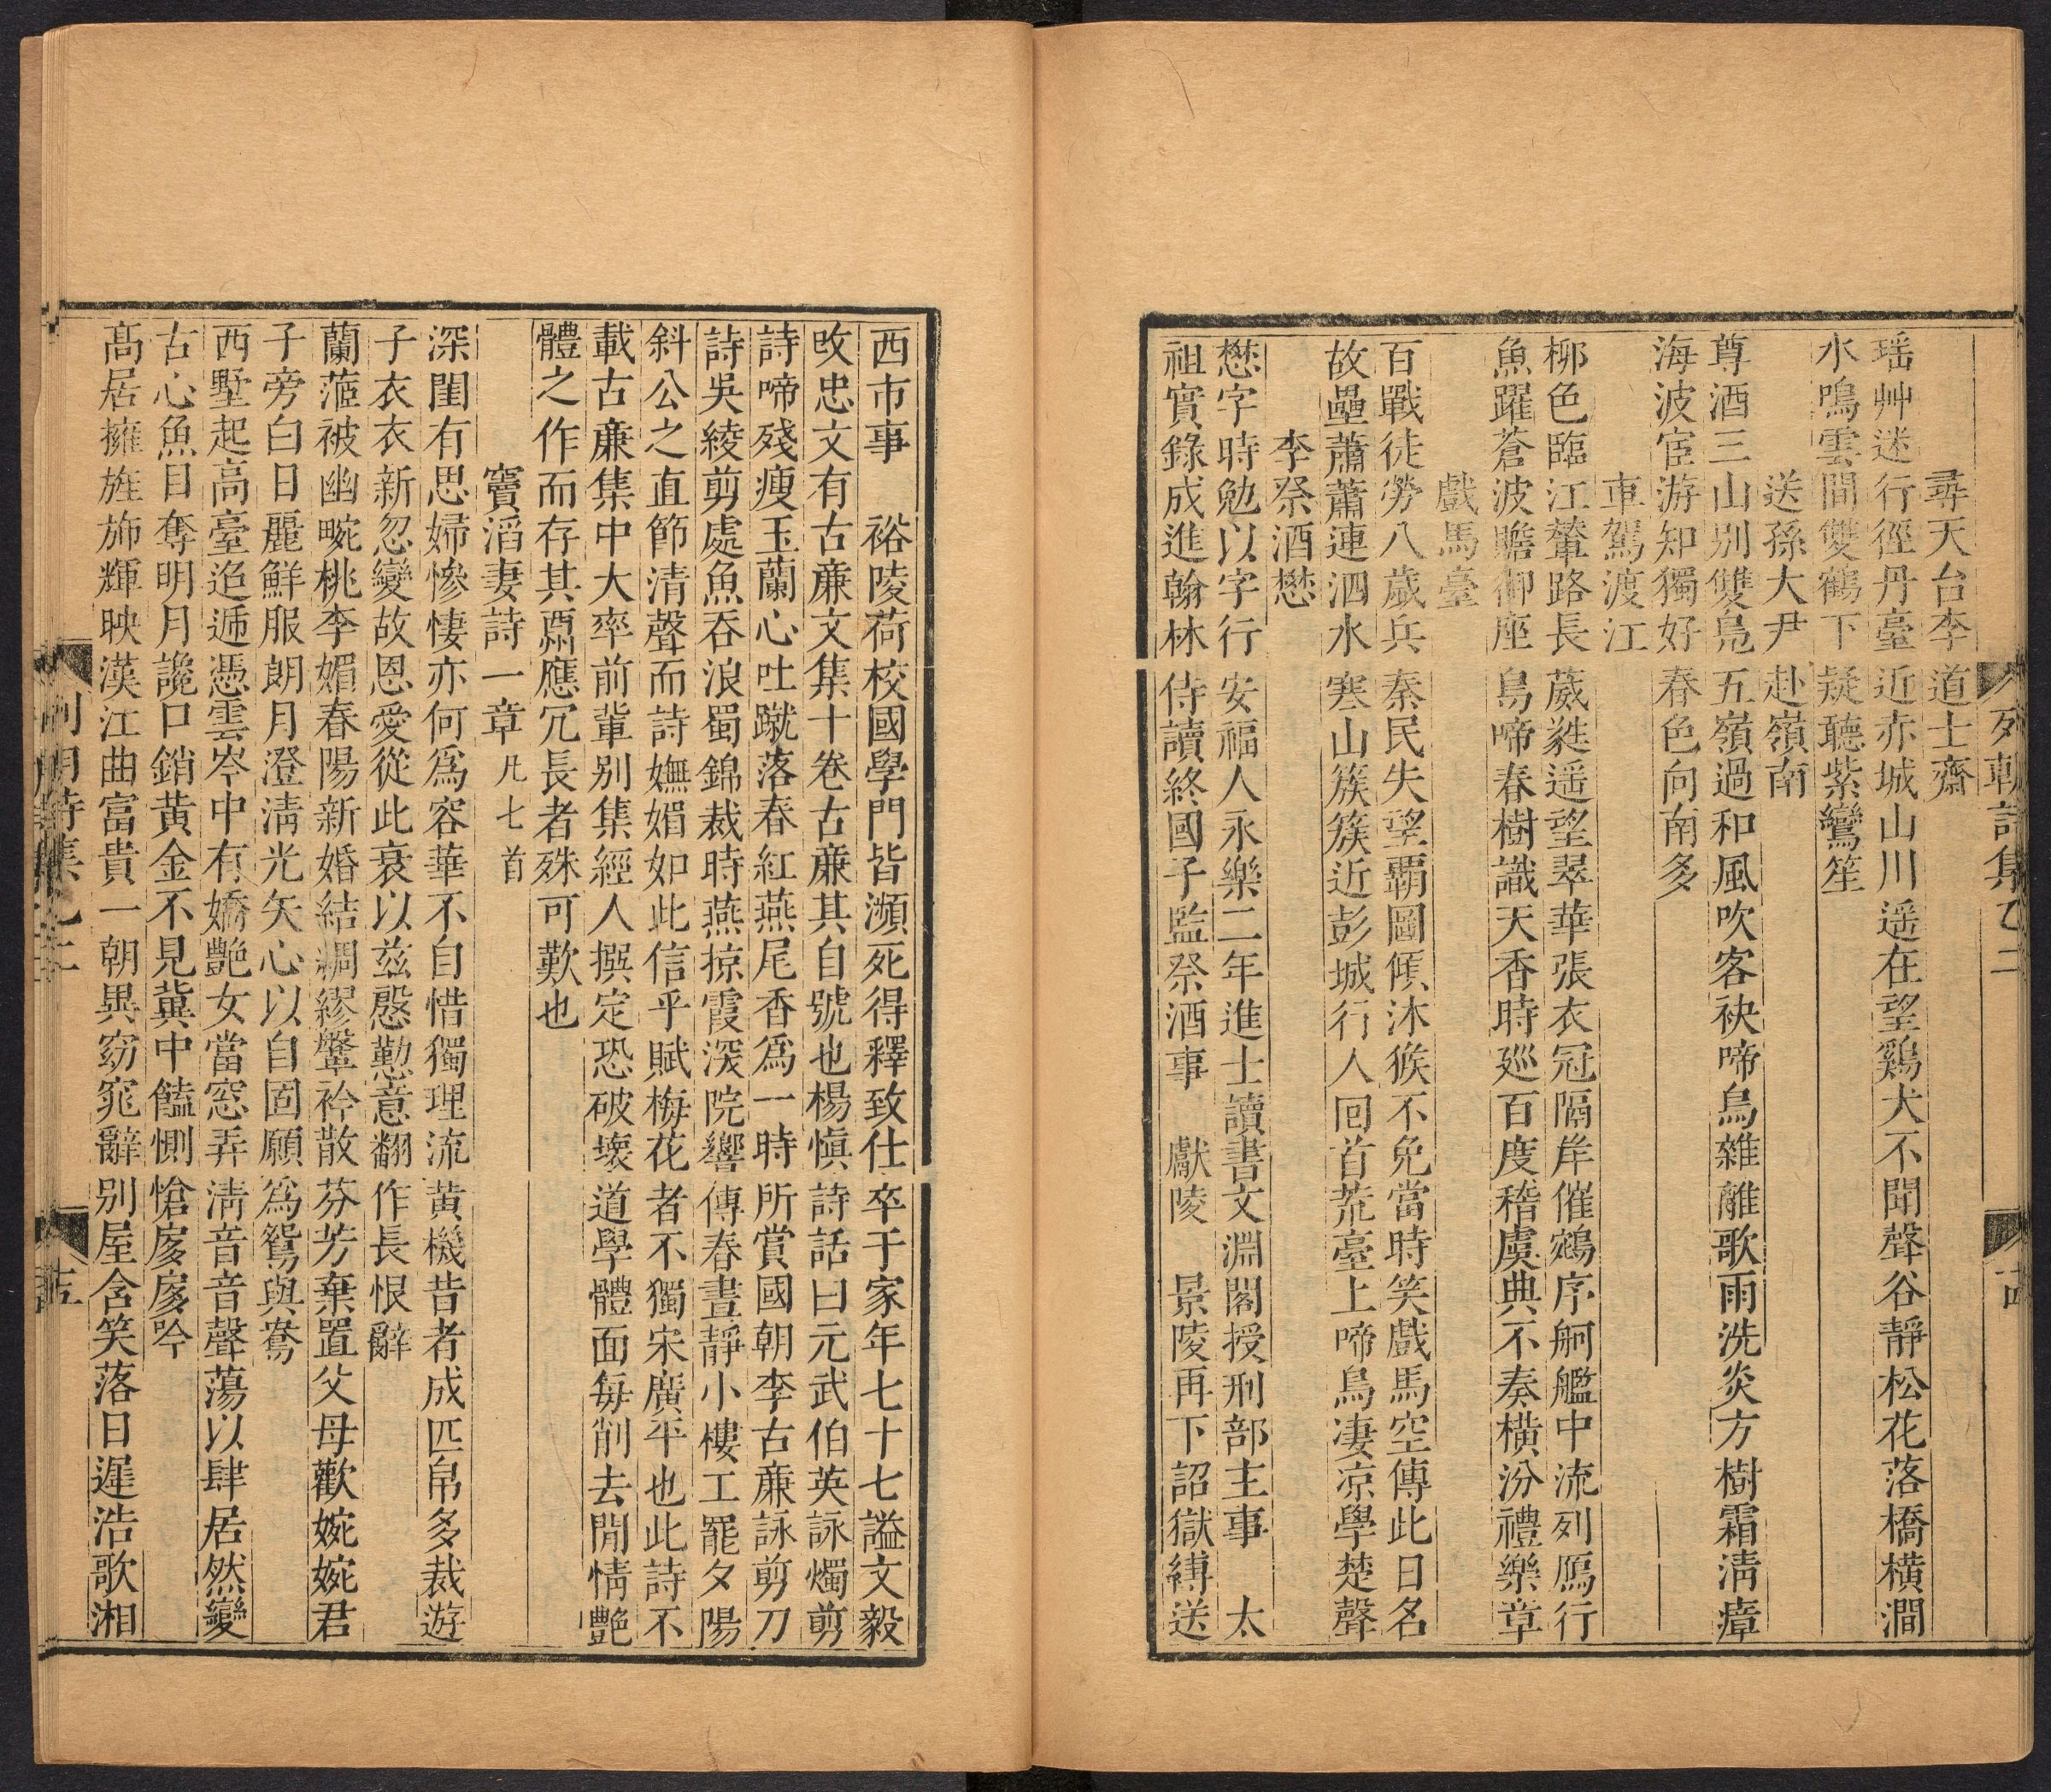 列朝詩集乙二
十四
尋天台李道士齋
瑶艸迷行徑丹臺近赤城山川遥在望鷄犬不聞聲谷靜松花落橋横澗
水鳴雲間雙鶴下疑聽紫鸞笙
送孫大尹赴嶺南
尊酒三山别雙鳧五嶺過和風吹客袂啼鳥雜離歌雨洗炎方樹霜淸瘴
海波宦游知獨好春色向南多
車駕渡江
柳色臨江輦路長葳蕤遥望翠華張衣冠隔岸催鵷序舸艦中流列鴈行
魚躍蒼波瞻御座鳥啼春樹識天香時廵百度稽虞典不奏横汾禮樂章
戲馬臺
百戰徒勞八歲兵秦民失望覇圖傾沐猴不免當時笑戲馬空傳此日名
故壘蕭蕭連泗水寒山簇簇近彭城行人回首荒臺上啼鳥凄凉學楚聲
李祭酒懋
懋字時勉以字行安福人永樂二年進士讀書文淵閣授刑部主事　太
祖實錄成進翰林侍讀終國子監祭酒事　獻陵　景陵再下詔獄縛送
西市事　裕陵荷校國學門皆瀕死得釋致仕卒于家年七十七謚文毅
攺忠文有古亷文集十卷古亷其自號也楊愼詩話曰元武伯英詠燭剪
詩啼殘瘦玉蘭心吐蹴落春紅燕尾香爲一時所賞國朝李古亷詠剪刀
詩吳綾剪處魚吞浪蜀錦裁時燕掠霞深院響傳春晝靜小樓工罷夕陽
斜公之直節清聲而詩嫵媚如此信乎賦梅花者不獨宋廣平也此詩不
載古亷集中大率前輩别集經人撰定恐破壞道學體面每削去閒情艶
體之作而存其酬應冗長者殊可歎也
竇滔妻詩一章凡七首
深閨有思婦慘悽亦何爲容華不自惜獨理流黃機昔者成匹帛多裁遊
子衣衣新忽變故恩愛從此衰以兹慇懃意翻作長恨辭
蘭蒞被幽畹桃李媚春陽新婚結綢繆鞶衿散芬芳棄置父母歡婉婉君
子旁白日麗鮮服朗月澄淸光矢心以自固願爲鴛與鴦
西墅起高臺迢逓憑雲岑中有嬌艶女當窓弄淸音音聲蕩以肆居然變
古心魚目奪明月讒口銷黃金不見冀中饁惻愴扊扅吟
髙居擁旌斾輝映漢江曲富貴一朝異窈窕辭别屋含笑落日遲浩歌湘
列朝詩集乙二
十五